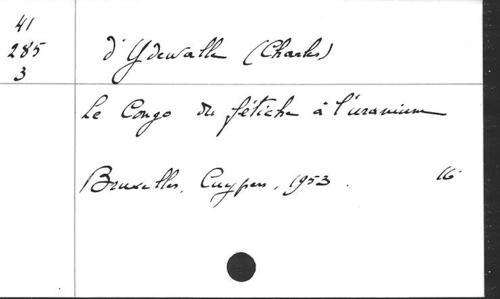 41
285
3
d'Ydewalle (Charles)
Le Congo du fétiche à l'uranium
Bruxelles, Cuypers, 1953. 16°